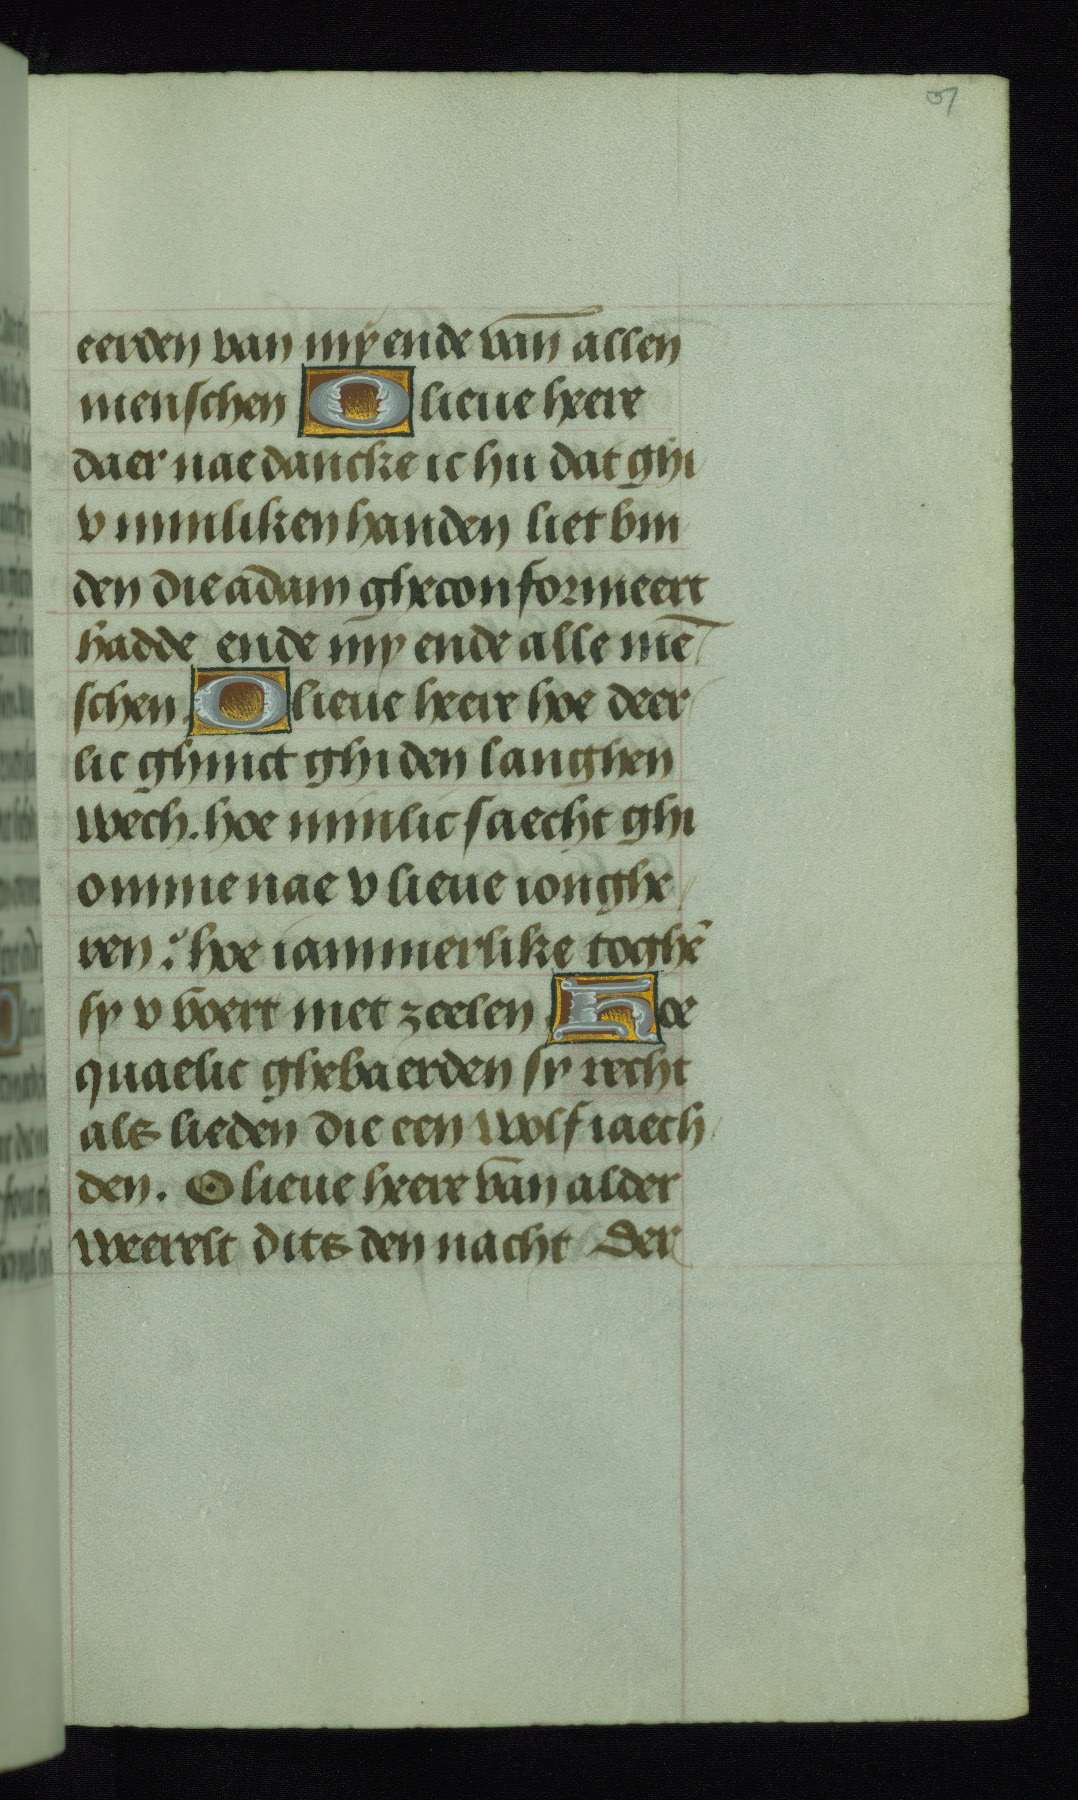 eerden van my ende van allen
menschen O lieue heere
daer nae dancke ic hu dat ghi
v minliken handen liet bin
den die adam gheconformeert
hadde ende my ende alle mē
schen. O lieue heere hoe deer
lic ghinct ghi den langhen
wech. hoe minlic saecht ghi
omme nae v lieue ionghe
ren: hoe iammerlike toghē
sy v voert met zeelen. Hoe
quaelic ghebaerden sy recht
als lieden die een wolf iaech
den. O lieue heere van alder
weerelt dits den nacht der